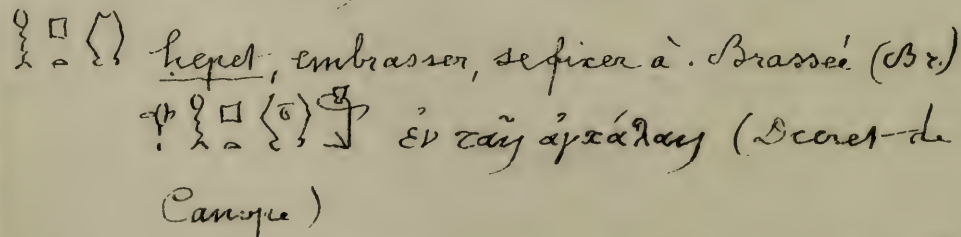 𓎛𓊪𓏏 ḥepet, embrasser, se fixer à. Brassée (Br.)
𓎛𓊪𓏏 ἐν ταῖς ἀγκάλαις (Décret de
Canope)